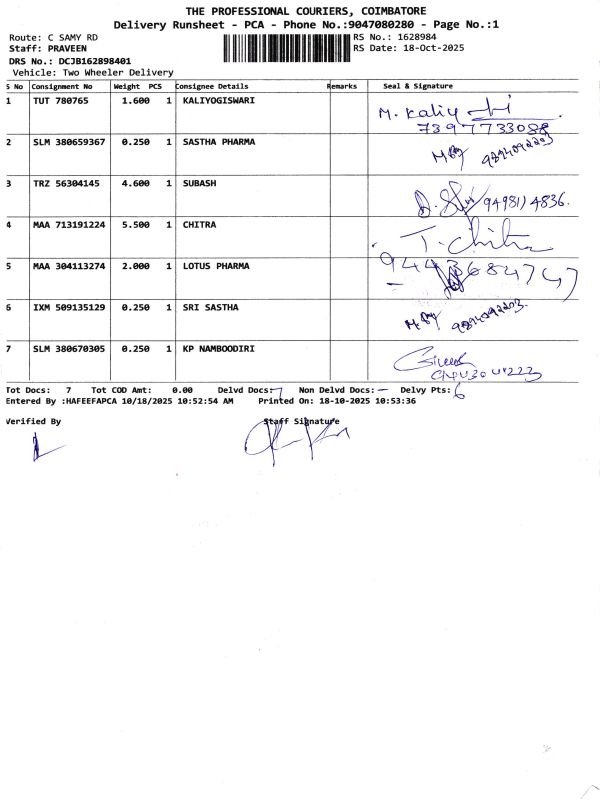 THE PROFESSIONAL COURIERS, COIMBATORE
Delivery Runsheet - PCA - Phone No.:9047080280 - Page No.:1
Route: C SAMY RD RS No.: 1628984
Staff: PRAVEEN RS Date: 18-Oct-2025
DRS No.: DCJB162898401
Vehicle: Two Wheeler Delivery
S No Consignment No Weight PCS Consignee Details Remarks Seal & Signature
1 TUT 780765 1.600 1 KALIYOGISWARI M. Kaliy
7397733088
2 SLM 380659367 0.250 1 SASTHA PHARMA 9894092203
3 TRZ 56304145 4.600 1 SUBASH 9498114836.
4 MAA 713191224 5.500 1 CHITRA T. Chitra
5 MAA 304113274 2.000 1 LOTUS PHARMA 9443684747
6 IXM 509135129 0.250 1 SRI SASTHA 9894092203.
7 SLM 380670305 0.250 1 KP NAMBOODIRI
Tot Docs: 7 Tot COD Amt: 0.00 Delvd Docs: 7 Non Delvd Docs: — Delvy Pts: 6
Entered By :HAFEEFAPCA 10/18/2025 10:52:54 AM Printed On: 18-10-2025 10:53:36
Verified By Staff Signature